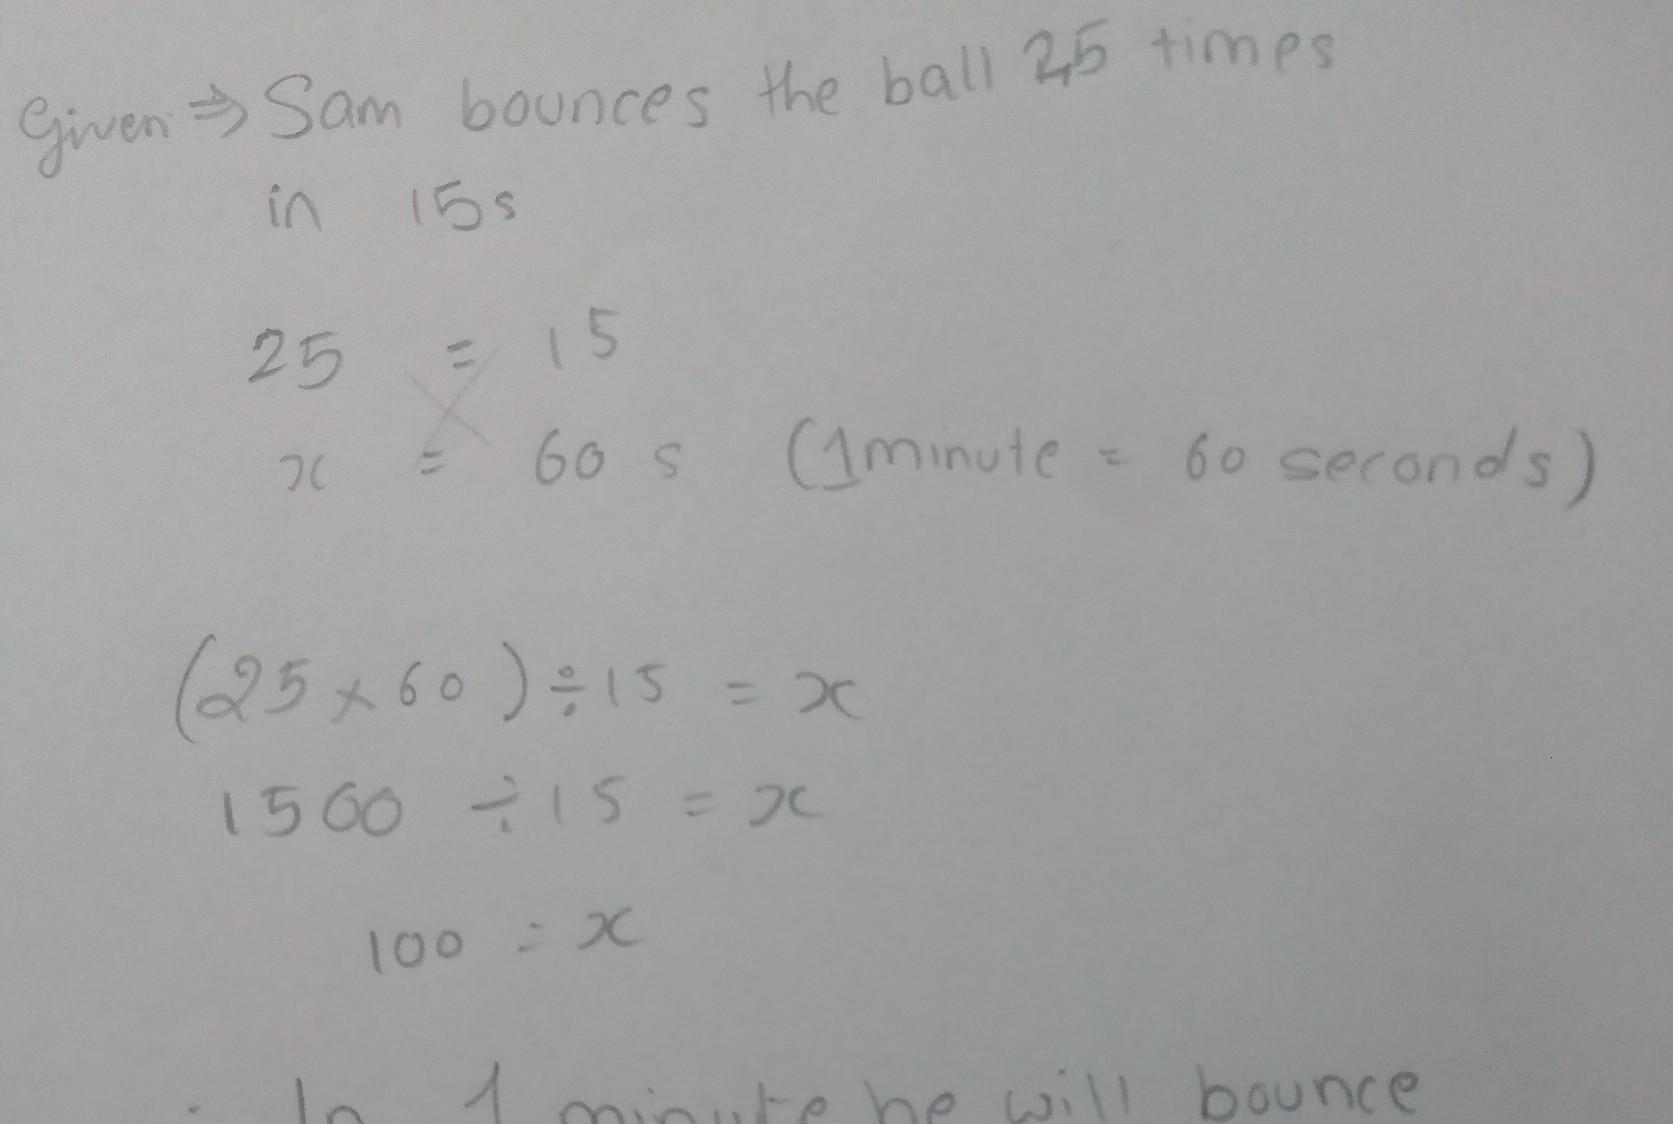 Given ⇒ Sam bounces the ball 25 times
in 15s
25 = 15
x = 60 s (1minute = 60 seconds)
(25 × 60) ÷ 15 = x
1500 ÷ 15 = x
100 = x
In 1 minute he will bounce